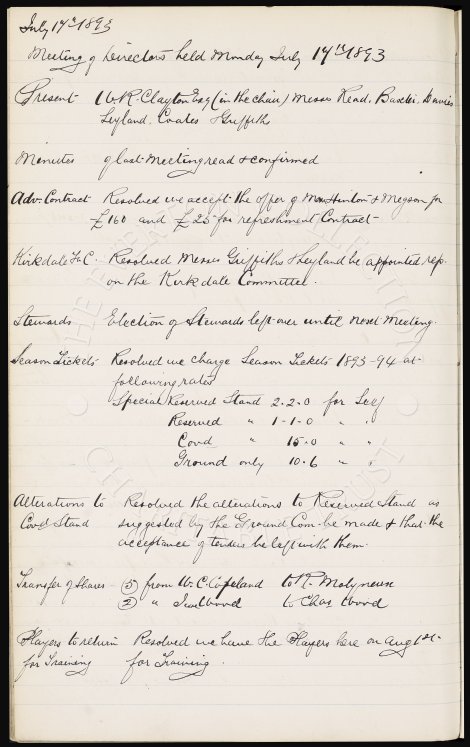 July 17th 1893
Meeting of Directors held Monday July 17th 1893
Present W.R. Clayton Esq (in the chair) Messrs Read, Baxter, Davies
Leyland, Coates & Griffiths
Minutes of last Meeting read & confirmed
Adv. Contract Resolved we accept the offer of Hinton & Megson for
£160 and £25 for refreshment Contract
Kirkdale F.C. Resolved Messrs Griffiths & Leyland be appointed rep.
on the Kirkdale Committee.
Stewards Election of Stewards left over until next Meeting.
Season Tickets Resolved we charge Season Tickets 1893-94 at
following rates
Special Reserved Stand 2-2-0 for Self
Reserved " 1-1-0 " "
Covd " 15-0 " "
Ground only 10-6 " "
Alterations to Resolved the alterations to Reserved Stand as
Covd Stand suggested by the Ground Com. be made & that the
acceptance of tenders be left with them.
Transfer of Shares - (5) from W.C. Copeland to R. Molyneux
(2) " to Chas Wood
Players to return Resolved we have the Players here on Aug 1st
for Training for Training.